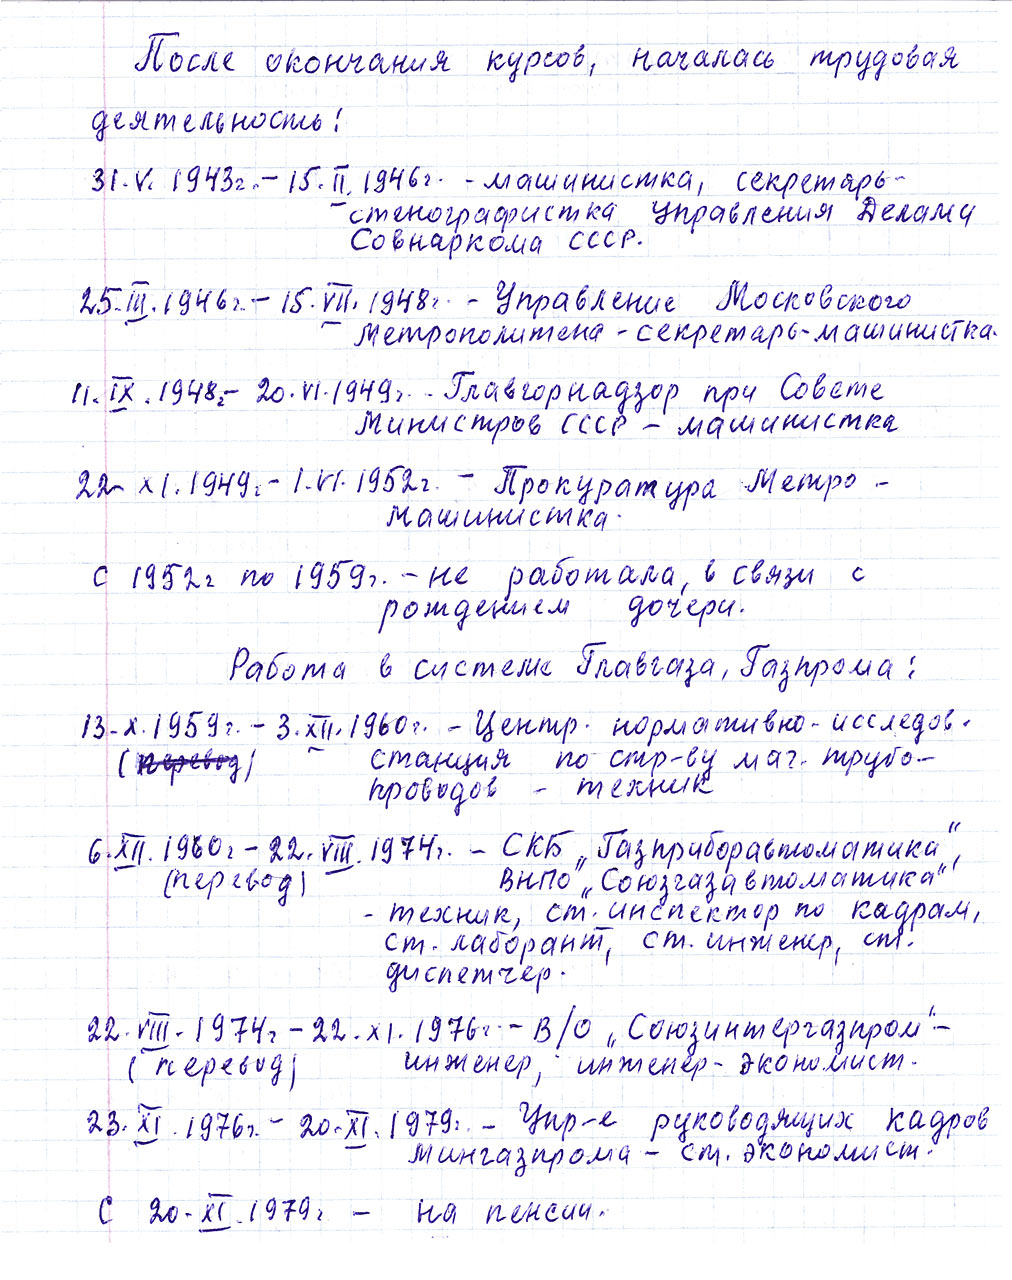 После окончания курсов, началась трудовая
деятельность:
31.V. 1943г. – 15.II.1946г. - машинистка, секретарь-
стенографистка Управления Делами
Совнаркома СССР.
25.III.1946г. – 15.VII.1948г. - Управление Московского
Метрополитена - секретарь-машинистка.
11.IX.1948г. – 20.VI.1949г. - Главгорнадзор при Совете
Министров СССР – машинистка
22. XI.1949г. - 1.VI.1952г. – Прокуратура Метро -
машинистка.
С 1952г по 1959г. – не работала, в связи с
рождением дочери.
Работа в системе Главгаза, Газпрома:
13.X.1959г. – 3.XII.1960г. – Центр. нормативно-исследов.
(перевод) станция по стр-ву маг. трубо-
проводов - техник
6.XII.1960г – 22.VIII.1974г. – СКБ „Газприборавтоматика",
(перевод) ВНПО „Союзгазавтоматика"
- техник, ст. инспектор по кадрам,
ст. лаборант, ст. инженер, ст.
диспетчер.
22.VIII.1974г – 22.XI.1976г – В/О „Союзинтергазпром" –
(перевод) инженер, инженер-экономист.
23.XI.1976г. – 20.XI.1979г. – Упр-е руководящих кадров
Мингазпрома – ст. экономист.
С 20.XI.1979г – на пенсии.